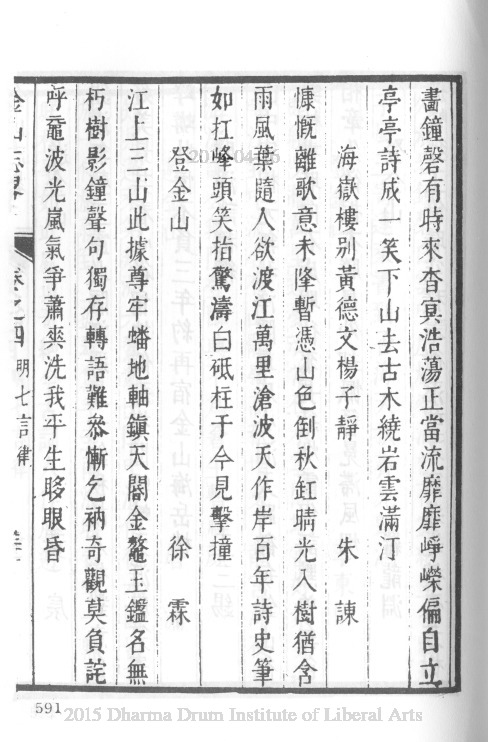 畵鐘磬有時來杳㝠浩蕩正當流靡靡崢嶸偏自立
亭亭詩成一笑下山去古木繞岩雲滿汀
海嶽樓别黃德文楊子靜 朱諫
慷慨離歌意未降暫憑山色倒秋缸晴光入樹猶含
雨風葉隨人欲渡江萬里滄波天作岸百年詩史筆
如扛峰頭笑指驚濤白砥柱于今見擊撞
登金山 徐霖
江上三山此據尊牢蟠地軸鎮天閽金鼇玉鑑名無
朽樹影鐘聲句獨存轉語難叅慚乞衲奇觀莫負詫
呼黿波光嵐氣爭蕭爽洗我平生眵眼昏
金山志畧 卷之四 明七言律
591
2015 Dharma Drum Institute of Liberal Arts